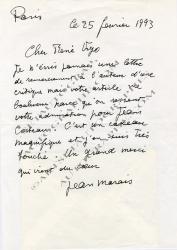 Paris
le 25 février 1993
Cher René Vigo
Je n'écris jamais une lettre
de remerciement à l'auteur d'une
critique mais votre article
bouleverse parce que on ressent
votre admiration pour Jean
Cocteau. C'est un cadeau
magnifique et j'en suis très
touché. Un grand merci
qui vient du cœur
Jean Marais